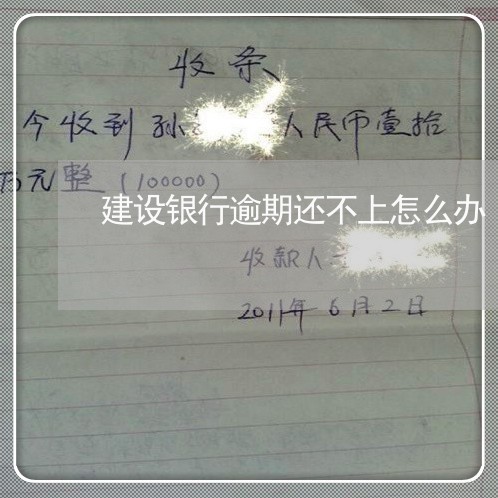 收条
今收到孙 人民币壹拾
万元整(100000)
建设银行逾期还不上怎么办
收款人
2011年6月2日